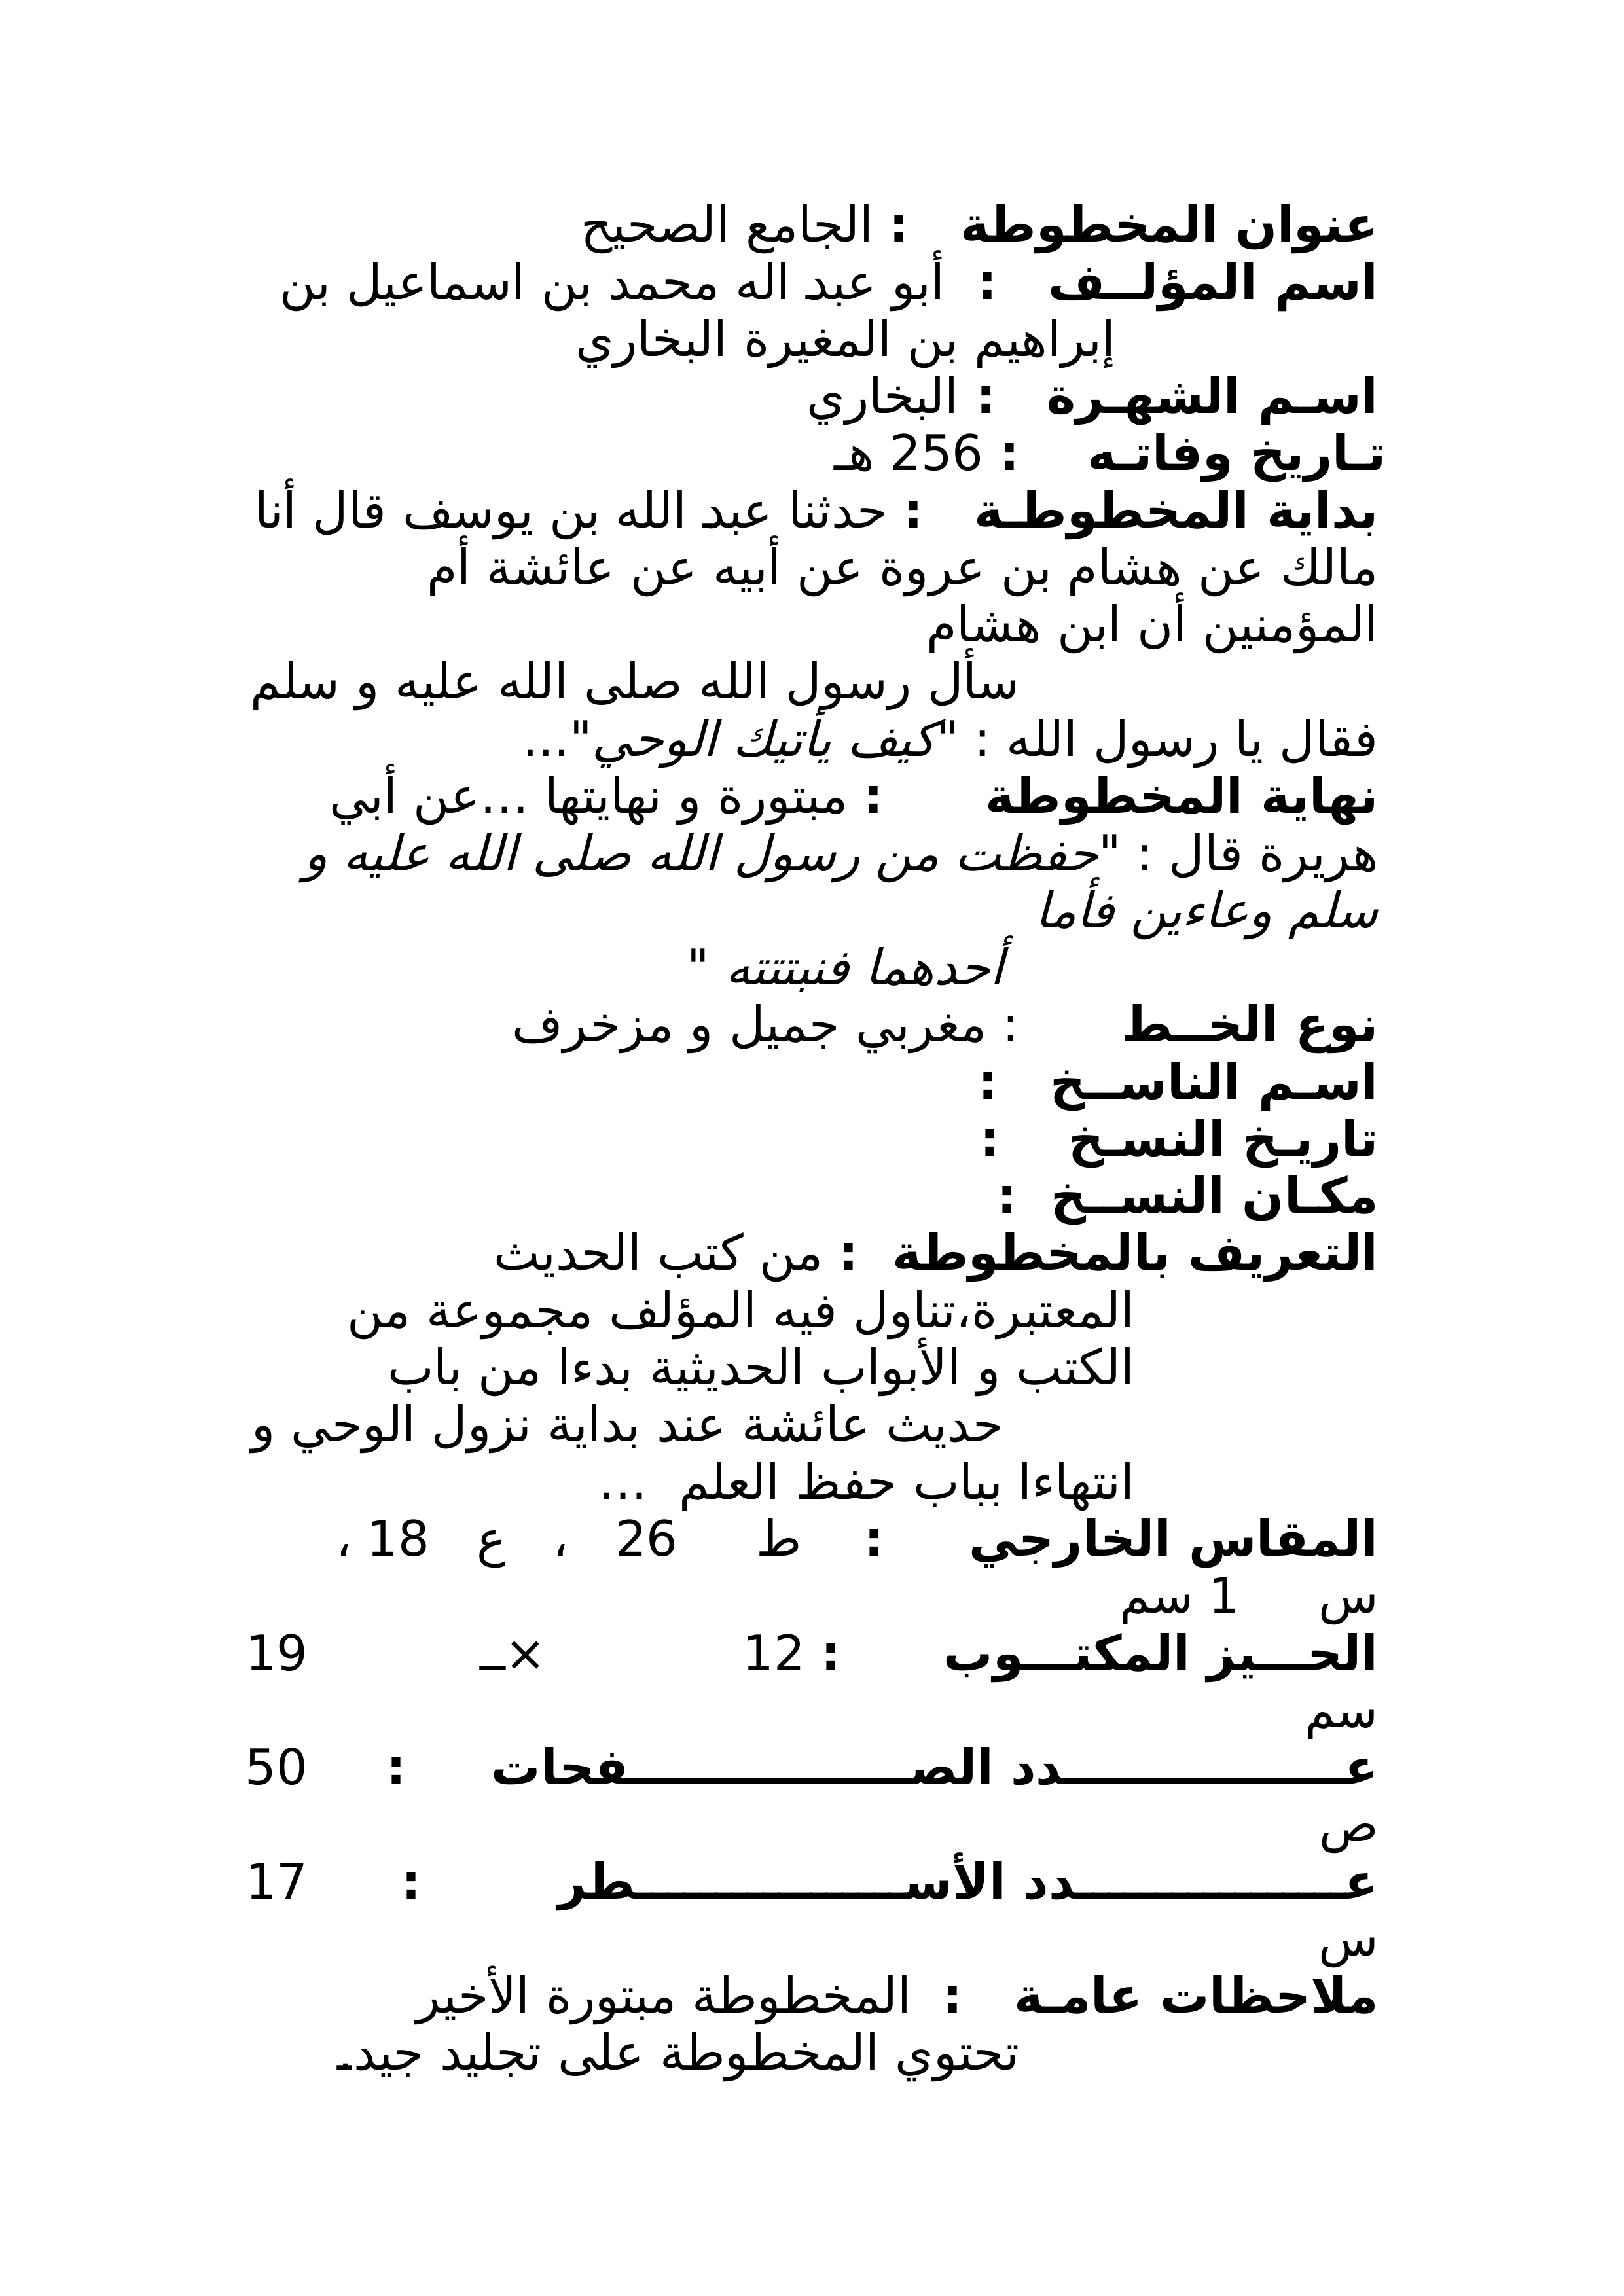 عنوان المخطوطة : الجامع الصحيح
اسم المؤلــف : أبو عبد اله محمد بن اسماعيل بن
إبراهيم بن المغيرة البخاري
اسـم الشهـرة : البخاري
تـاريخ وفاتـه : 256 هـ
بداية المخطوطـة : حدثنا عبد الله بن يوسف قال أنا
مالك عن هشام بن عروة عن أبيه عن عائشة أم
المؤمنين أن ابن هشام
سأل رسول الله صلى الله عليه و سلم
فقال يا رسول الله : "كيف يأتيك الوحي"...
نهاية المخطوطة : مبتورة و نهايتها ...عن أبي
هريرة قال : "حفظت من رسول الله صلى الله عليه و
سلم وعاءين فأما
أحدهما فنبتتته "
نوع الخــط : مغربي جميل و مزخرف
اسـم الناســخ :
تاريـخ النسـخ :
مكـان النســخ :
التعريف بالمخطوطة : من كتب الحديث
المعتبرة،تناول فيه المؤلف مجموعة من
الكتب و الأبواب الحديثية بدءا من باب
حديث عائشة عند بداية نزول الوحي و
انتهاءا بباب حفظ العلم ...
المقاس الخارجي : ط 26 ، ع 18 ،
س 1 سم
الحـــيز المكتـــوب : 12 ×ــ 19
سم
عـــــــــــــــــدد الصـــــــــــــــــفحات : 50
ص
عـــــــــــــــــدد الأســـــــــــــــــطر : 17
س
ملاحظات عامـة : المخطوطة مبتورة الأخير
تحتوي المخطوطة على تجليد جيد.